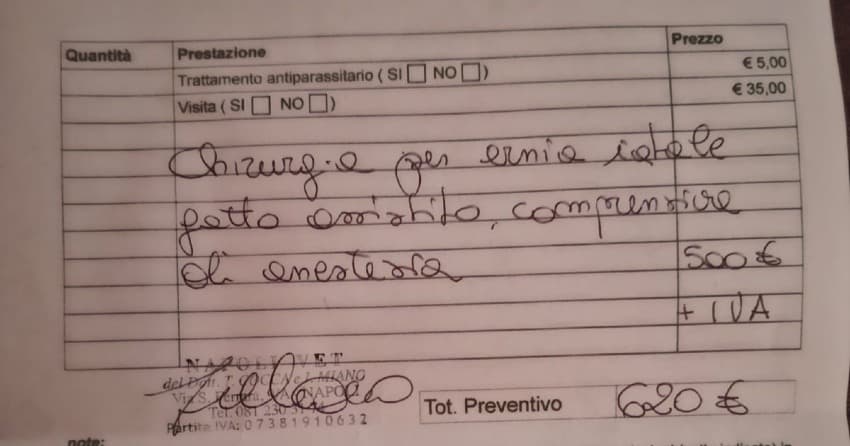 Quantità Prestazione Prezzo
Trattamento antiparassitario ( SI NO ) € 5,00
Visita ( SI NO ) € 35,00
Chirurgia per ernia iatale
gatto assistito, comprensive
di anestesia 500 €
+ IVA
NAPOLI VET
del Dott. MIANO
Via S. NAPOLI
Tel. 081 230
Partita IVA: 07381910632
Tot. Preventivo 620 €
note: